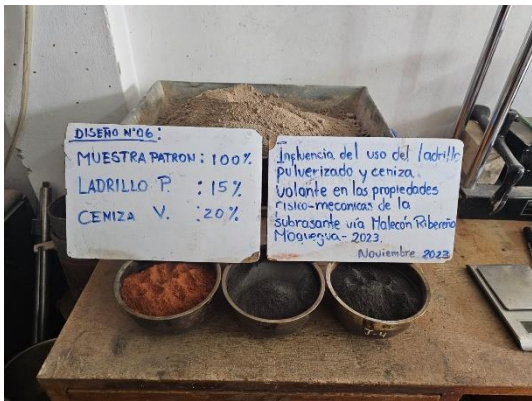 DISEÑO N°06:
MUESTRA PATRON : 100%
LADRILLO P. : 15%
CENIZA V. : 20%
Influencia del uso del ladrillo
pulverizado y ceniza
volante en las propiedades
risiko-mecanicas de la
subrasante vía Malecón Ribereño
Moquegua - 2023.
Noviembre 2023